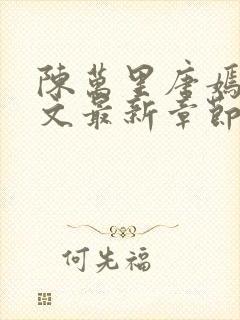 陳萬里唐嫣
文最新章節
何先福